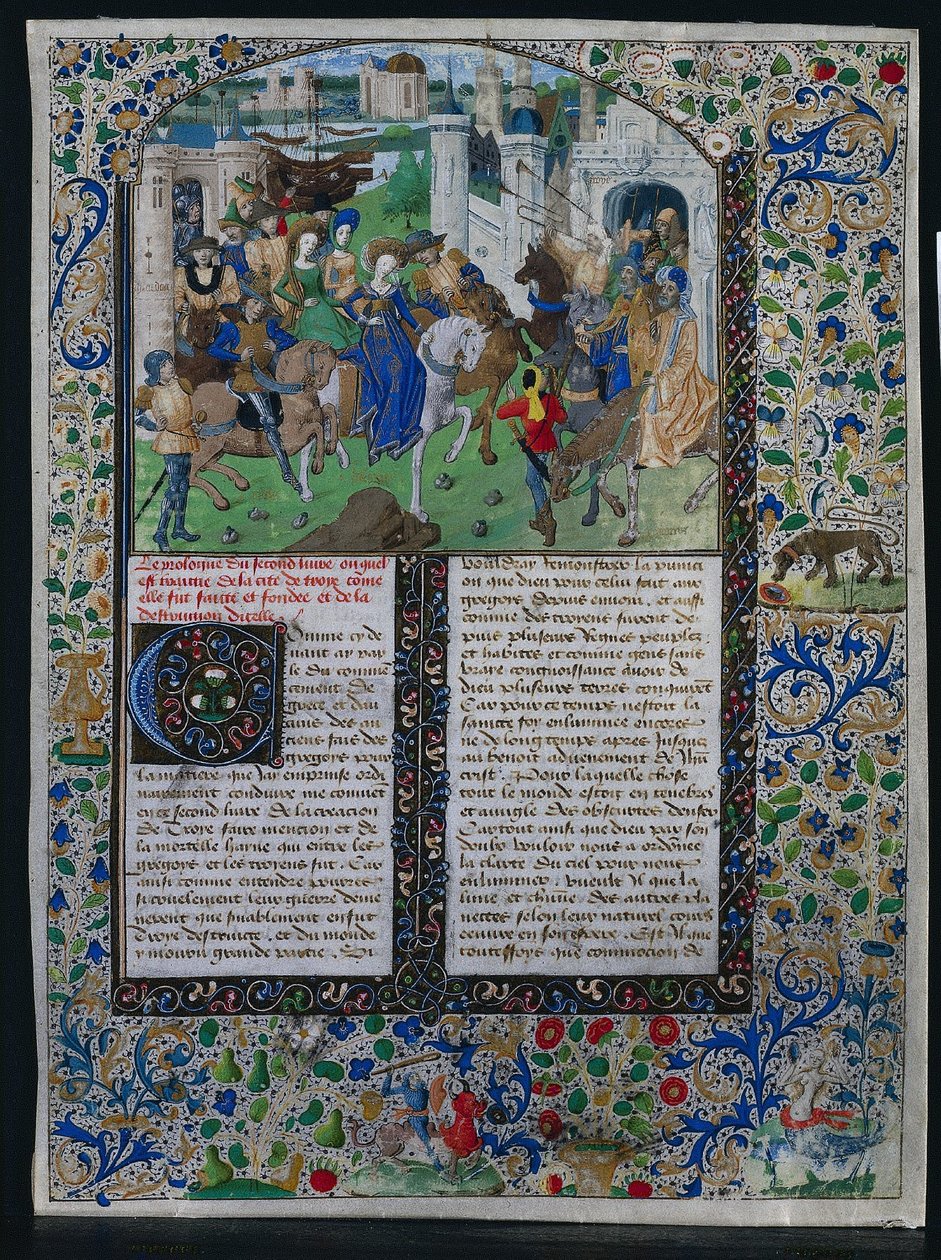 Le prologue du second livre ouquel
est traittie de la cite de troye come
elle fut faitte et fondee et de la
destruttion dicelle.
Comme cy de
uant ay par
le du comme
cement de
grece et dau
cuns des an
ciens fais des
gregoys pour
la matiere que jay emprinse ordi
nairement conduire me conuiēt
en ce second liure de la creacion
de Troye faire mencion et de
la mortelle hayne qui entre les
gregoys et les troyens fut. Car
ainsi comme entendre pourres
si cruelement leur guerre deme
nerent que finablement en fut
Troye destruitte, et du monde
y mouru grande partie. Si
vouldray demonstrer la puniti
on que dieu pour celui fait aux
gregoys depuis enuoia. et aussi
comme des troyens furent de
puis plusieurs Regnes peuplez.
et habites et comme gens sans
vraye congnoissance auoir de
dieu plusieurs terres conquirēt
Car pour ce temps nestoit la
saincte foy enluminee encores
ne de long temps apres Jusques
au benoit aduenement de Jhu
crist. Pour laquelle chose
tout le monde estoit en tenebres
et auugle des obscurtes
Car tout ainsi que dieu par son
doulz vouloir nous a ordonee
la clarte du ciel pour nous
enluminer. vueult Il que la
lune et chūne des autres pla
nettes selon leur naturel cours
ceuure en Est Il que
touteffoys que commocion de